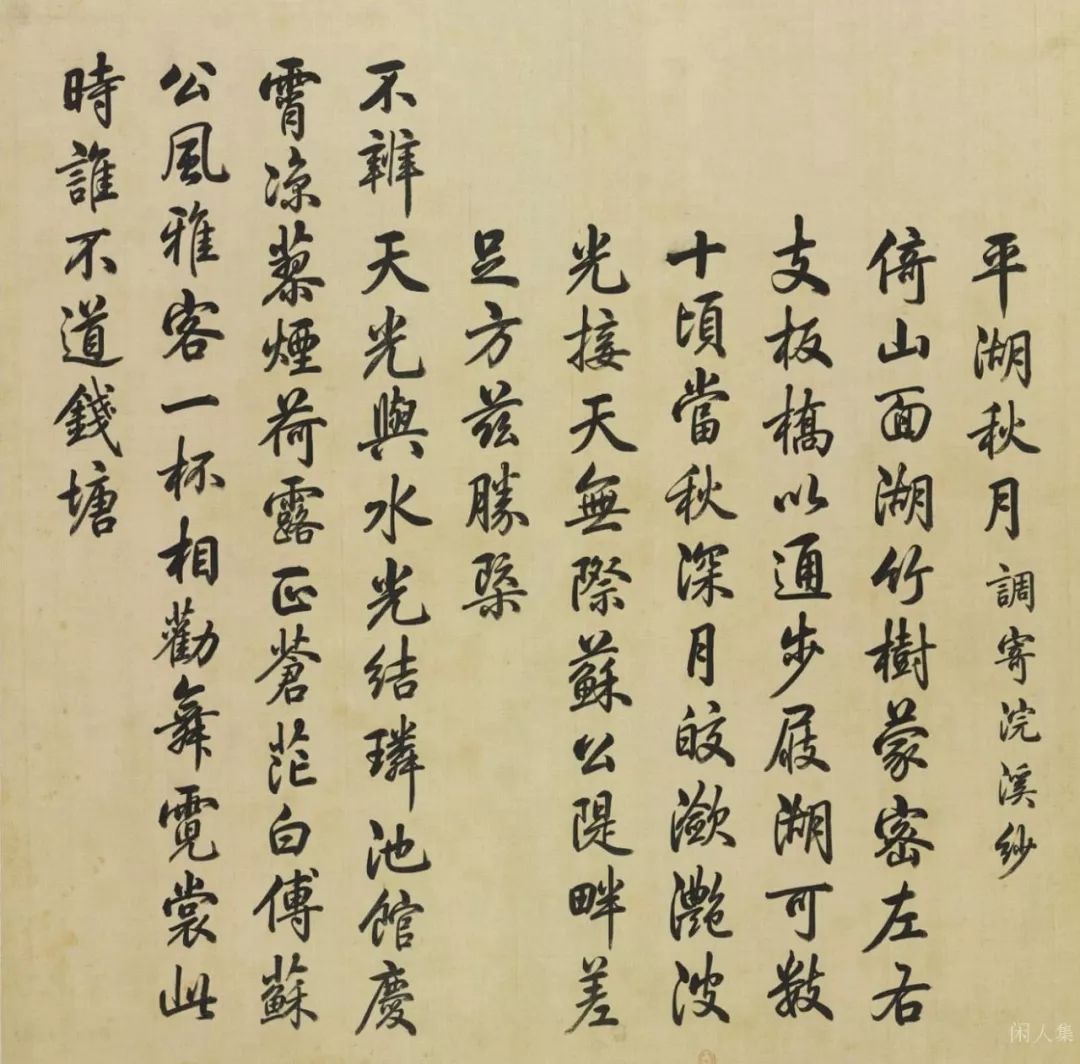 平湖秋月 調寄浣溪紗
倚山面湖竹樹蒙密左右
支板橋以通步屐湖可數
十頃當秋深月皎瀲灧波
光接天無際蘇公隄畔差
足方茲勝槩
不辨天光與水光結璘池館慶
霄凉蓼煙荷露正蒼茫白傅蘇
公風雅客一杯相勸舞霓裳此
時誰不道錢塘
闲人集